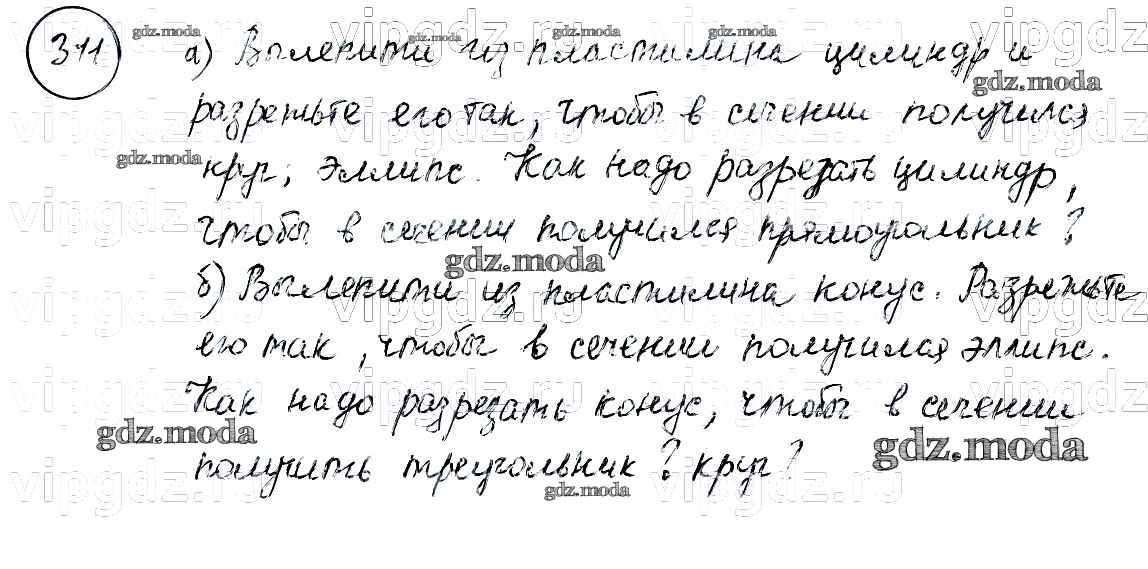 311 а) Вылепити из пластилина цилиндр и
разрежьте его так, чтобы в сечении получился
круг; эллипс. Как надо разрезать цилиндр,
чтобы в сечении получился прямоугольник?
б) Вылепити из пластилина конус. Разрежьте
его так, чтобы в сечении получился эллипс.
Как надо разрезать конус, чтобы в сечении
получить треугольник? круг?